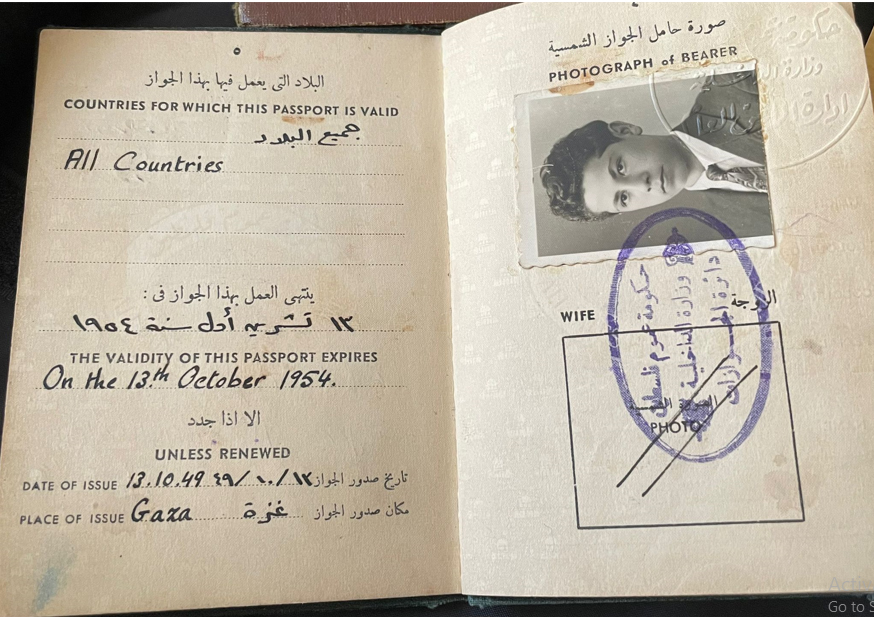 ٥
البلاد التى يعمل فيها بهذا الجواز
COUNTRIES FOR WHICH THIS PASSPORT IS VALID
جميع البلاد
All Countries
ينتهى العمل بهذا الجواز فى :
١٣ تشرين أول سنة ١٩٥٤
THE VALIDITY OF THIS PASSPORT EXPIRES
On the 13.th October 1954.
الا اذا جدد
UNLESS RENEWED
DATE OF ISSUE 13.10.49 ٤٩/١٠/١٣ تاريخ صدور الجواز
PLACE OF ISSUE Gaza غزة مكان صدور الجواز
صورة حامل الجواز الشمسية
PHOTOGRAPH of BEARER
حكومة
وزارة الداخلية
ادارة
WIFE الزوجة
الصورة الشمسية
PHOTO
حكومة عموم فلسطين
وزارة الداخلية
دائرة الجوازات
Go to S